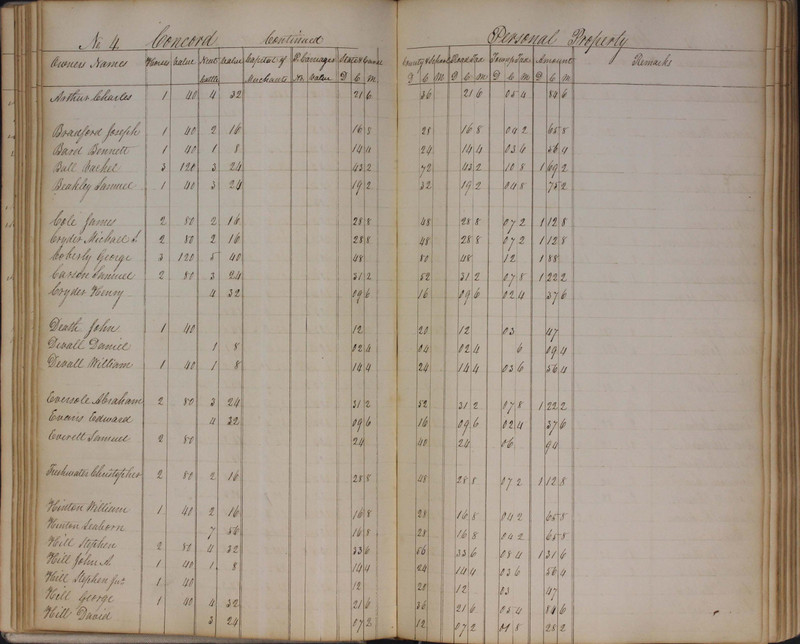 No 4. Concord Continued Personal Property
Owners Names Horses Value Neat Cattle Value Capital of Merchants P. Carriages No. Value State & Canal D C M County & School D C M Road Tax D C M Township Tax D C M Amount D C M Remarks
Arthur Charles 1 40 4 32 21 6 36 21 6 05 4 84 6
Bradford Joseph 1 40 2 16 16 8 28 16 8 04 2 65 8
Bard Bennett 1 40 1 8 14 4 24 14 4 03 6 56 4
Ball 3 120 3 24 43 2 72 43 2 10 8 1 69 2
Beakley Samuel 1 40 3 24 19 2 32 19 2 04 8 75 2
Cole James 2 80 2 16 28 8 48 28 8 07 2 1 12 8
Cryder Michael S. 2 80 2 16 28 8 48 28 8 07 2 1 12 8
Coberly George 3 120 5 40 48 80 48 12 1 88
Carson Samuel 2 80 3 24 31 2 52 31 2 07 8 1 22 2
Cryder Henry 4 32 09 6 16 09 6 02 4 37 6
Death John 1 40 12 20 12 03 47
Devall Daniel 1 8 02 4 04 02 4 6 09 4
Devall William 1 40 1 8 14 4 24 14 4 03 6 56 4
Eversole Abraham 2 80 3 24 31 2 52 31 2 07 8 1 22 2
Evans Edward 4 32 09 6 16 09 6 02 4 37 6
Everett Samuel 2 80 24 40 24 06 94
Freshwater Christopher 2 80 2 16 28 8 48 28 8 07 2 1 12 8
Hinton William 1 40 2 16 16 8 28 16 8 04 2 65 8
Hinton Seaborn 7 56 16 8 28 16 8 04 2 65 8
Hill Stephen 2 80 4 32 33 6 56 33 6 08 4 1 31 6
Hill John A. 1 40 1 8 14 4 24 14 4 03 6 56 4
Hill Stephen Jnr 1 40 12 20 12 03 47
Hill George 1 40 4 32 21 6 36 21 6 05 4 84 6
Hill David 3 24 07 2 12 07 2 01 8 28 2